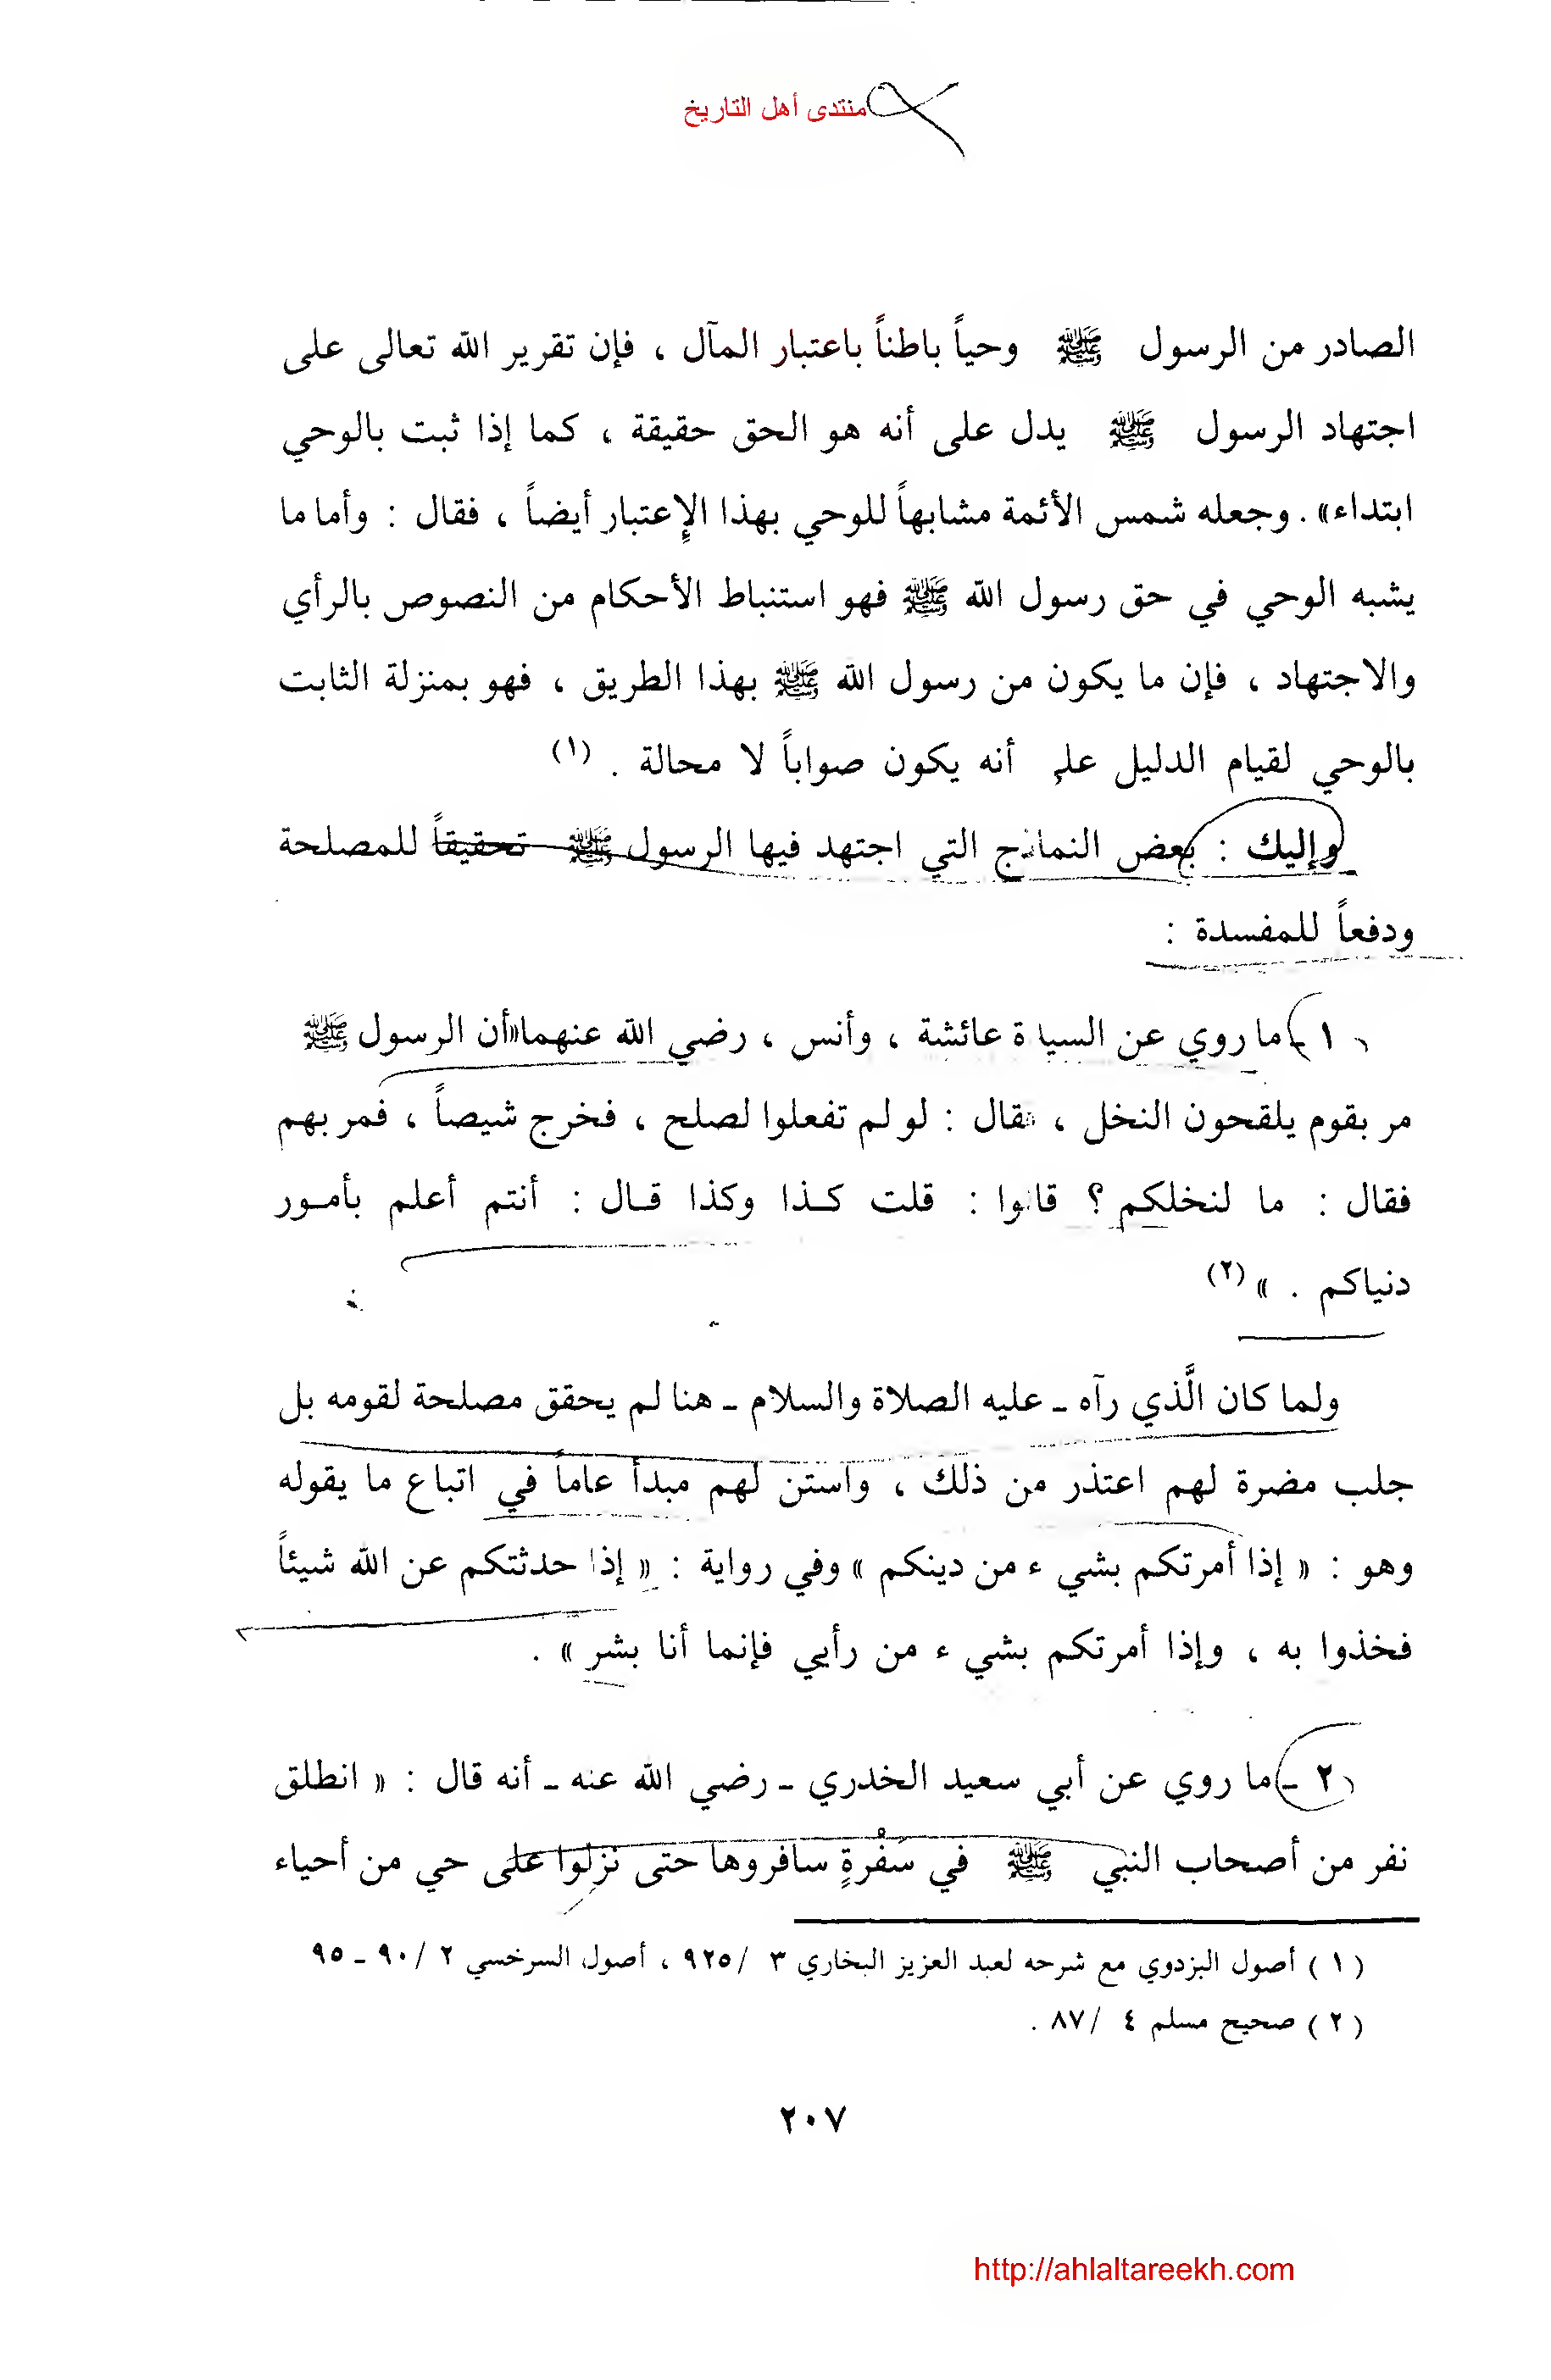 منتدى أهل التاريخ
الصادر من الرسول ﷺ وحياً باطناً باعتبار المآل ، فإن تقرير الله تعالى على
اجتهاد الرسول ﷺ يدل على أنه هو الحق حقيقة ، كما إذا ثبت بالوحي
ابتداء» . وجعله شمس الأئمة مشابهاً للوحي بهذا الإعتبار أيضاً ، فقال : وأما ما
يشبه الوحي في حق رسول الله ﷺ فهو استنباط الأحكام من النصوص بالرأي
والاجتهاد ، فإن ما يكون من رسول الله ﷺ بهذا الطريق ، فهو بمنزلة الثابت
بالوحي لقيام الدليل على أنه يكون صواباً لا محالة . (١)
وإليك : بعض النماذج التي اجتهد فيها الرسول ﷺ تحقيقاً للمصلحة
ودفعاً للمفسدة :
١ - ما روي عن السيدة عائشة ، وأنس ، رضي الله عنهما «أن الرسول ﷺ
مر بقوم يلقحون النخل ، فقال : لو لم تفعلوا لصلح ، فخرج شيصاً ، فمر بهم
فقال : ما لنخلكم ؟ قالوا : قلت كـذا وكذا قـال : أنتم أعلم بأمـور
دنياكم . » (٢)
ولما كان الَّذي رآه ـ عليه الصلاة والسلام ـ هنا لم يحقق مصلحة لقومه بل
جلب مضرة لهم اعتذر من ذلك ، واستن لهم مبدأ عاماً في اتباع ما يقوله
وهو : « إذا أمرتكم بشيء من دينكم » وفي رواية : « إذا حدثتكم عن الله شيئاً
فخذوا به ، وإذا أمرتكم بشيء من رأيي فإنما أنا بشر » .
٢ ـ ما روي عن أبي سعيد الخدري ـ رضي الله عنه ـ أنه قال : « انطلق
نفر من أصحاب النبي ﷺ في سَفْرةٍ سافروها حتى نزلوا على حي من أحياء
( ١ ) أصول البزدوي مع شرحه لعبد العزيز البخاري ٣ /٩٢٥ ، أصول السرخسي ٢ /٩٠ ـ ٩٥
( ٢ ) صحيح مسلم ٤ /٨٧ .
٢٠٧
http://ahlaltareekh.com